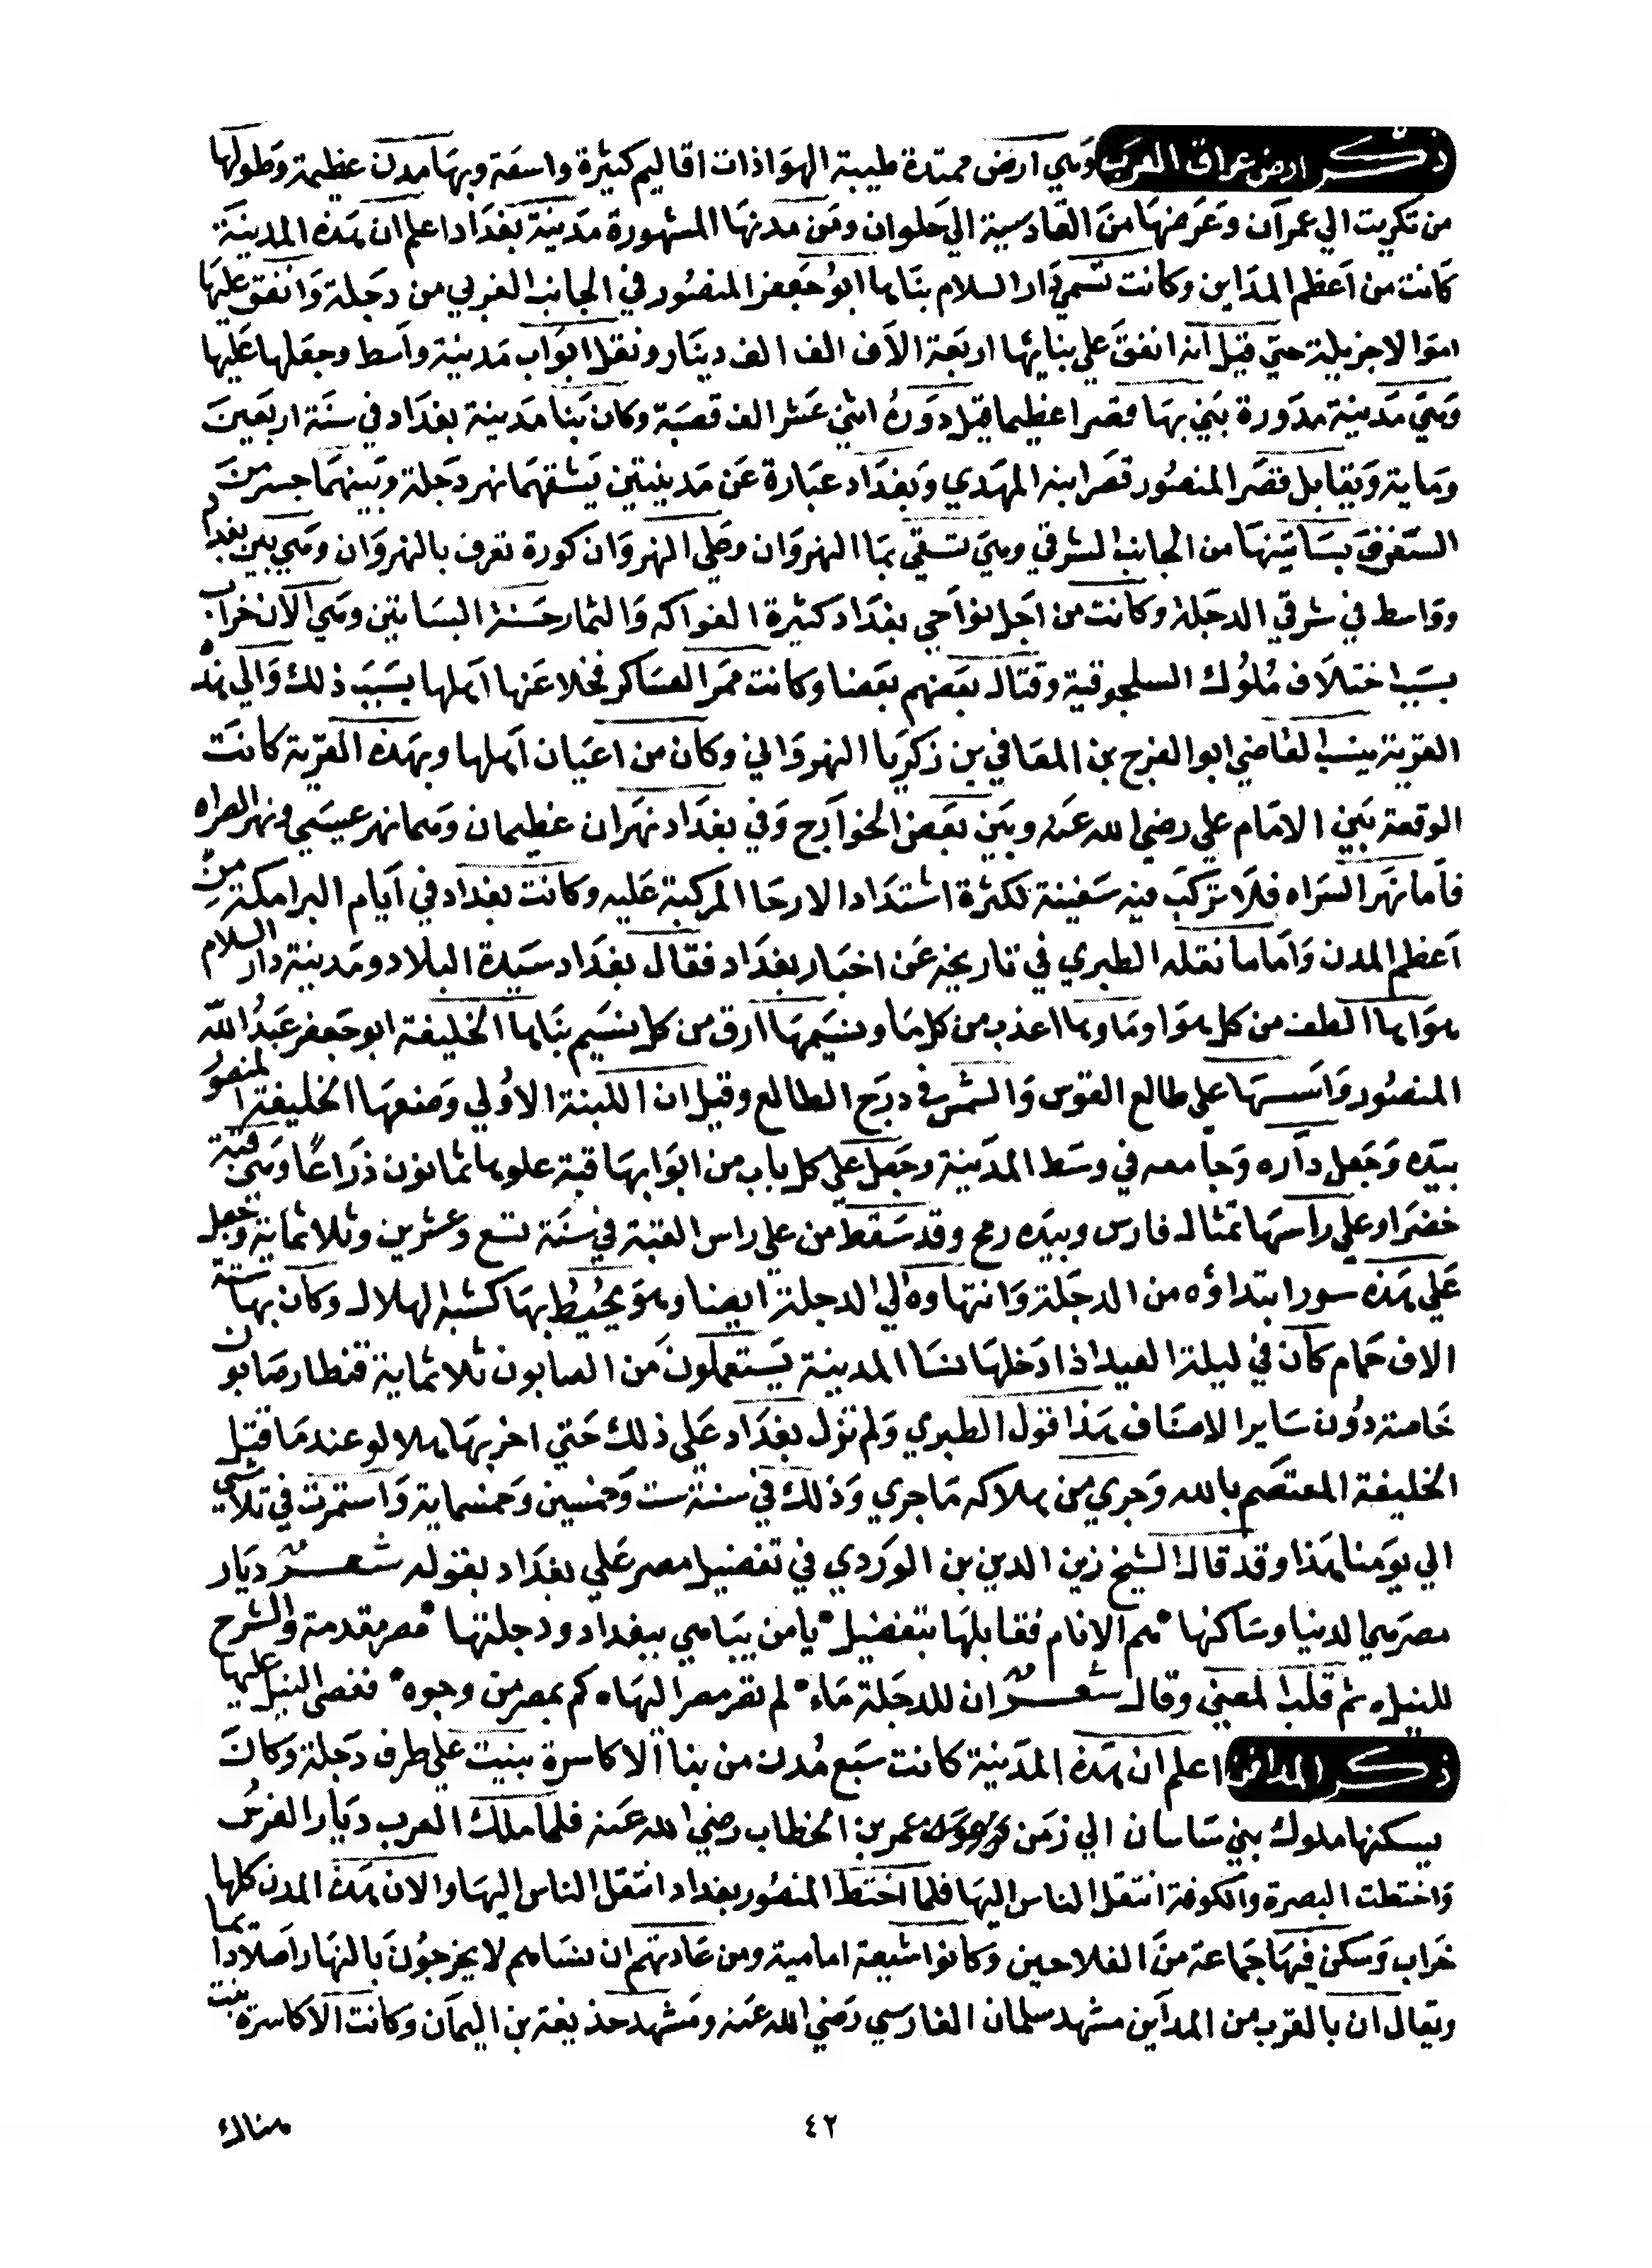 ذكر ارض عراق العرب وهي ارض ممتدة طيبة الهوا ذات اقاليم كثيرة واسعة وبها مدن عظيمة وطولها
من تكريت الي عمران وعرضها من القادسية الي حلوان ومن مدنها المشهورة مدينة بغداد اعلم ان هذه المدينة
كانت من اعظم المداين وكانت تسمي دار السلام بناها ابو جعفر المنصور في الجانب الغربي من دجلة وانفق عليها
اموالا جزيلة حتي قيل انه انفق علي بنايها اربعة الاف الف الف دينار ونقل ابواب مدينة واسط وجعلها عليها
وهي مدينة مدورة بني بها قصرا عظيما قيل دوره اثني عشر الف قصبة وكان بنا مدينة بغداد في سنة اربعين
وماية ويقابل قصر المنصور قصر ابنه المهدي وبغداد عبارة عن مدينتين يشقهما نهر دجلة وبينهما جسر من
السفن بساتينها من الجانب الشرقي وهي تسقي بما النهروان وعلي النهروان كورة تعرف بالنهروان وهي بين بغداد
وواسط في شرقي الدجلة وكانت من اجل نواحي بغداد كثيرة الفواكه والثمار حسنة البساتين وهي الان خراب
بسبب اختلاف ملوك السلجوقية وقتال بعضهم بعضا وكانت ممر العساكر فخلا عنها اهلها بسبب ذلك والي هذه
القرية ينسب القاضي ابو الفرج بن المعافي بن زكريا النهرواني وكان من اعيان اهلها وبهذه القرية كانت
الوقعة بين الامام علي رضي الله عنه وبين بعض الخوارج وفي بغداد نهران عظيمان وهما نهر عيسي ونهر الصراه
فاما نهر السراه فلا تركب فيه سفينة لكثرة اشتداد الارحا المركبة عليه وكانت بغداد في ايام البرامكة من
اعظم المدن واما ما نقله الطبري في تاريخه عن اخبار بغداد فقال بغداد سيدة البلاد ومدينة دار السلام
هواها الطف من كل هوا وماوها اعذب من كل ما ونسيمها ارق من كل نسيم بناها الخليفة ابو جعفر عبد الله
المنصور واسسها علي طالع القوس والشمس في درج الطالع وقيل ان اللبنة الاولي وضعها الخليفة المنصور
بيده وجعل داره وجامعه في وسط المدينة وجعل علي كل باب من ابوابها قبة علوها ثمانون ذراعا وهي قبة
خضرا وعلي راسها تمثال فارس وبيده رمح وقد سقط من علي راس القبة في سنة تسع وعشرين وثلاثماية وجعل
علي هذه سورا ابتداؤه من الدجلة وانتهاوه الي الدجلة ايضا وهو يحيط بها كشبه الهلال وكان بها ستة
الاف حمام كان في ليلة العيد اذا دخلها نسا المدينة يستعملون من الصابون ثلاثماية قنطار صابون
خاصة دون ساير الاصناف هذا قول الطبري ولم تزل بغداد علي ذلك حتي اخربها هلالو عندما قتل
الخليفة المعتصم بالله وجري من هلاكه ما جري وذلك في سنة ست وخمسين وخمسماية واستمرت في تلاشي
الي يومنا هذا وقد قال الشيخ زين الدين بن الوردي في تفضيل مصر علي بغداد بقوله شعر ديار
مصر هي الدنيا وساكنها * هم الانام فقابلها بتفضيل * يا من يباهي ببغداد ودجلتها * مصر مقدمة والشرح
للنيل ه ثم قلب المعني وقال شعر ان للدجلة ماء * لم تقر مصر اليها ه كم بمصر من وجوه * فغصى النيل عليها
ذكر المداين اعلم ان هذه المدينة كانت سبع مدن من بنا الاكاسرة بنيت علي طرف دجلة وكان
يسكنها ملوك بني ساسان الي زمن عمر بن الخطاب رضي الله عنه فلما ملك العرب ديار الفرس
واختطت البصرة والكوفة انتقل الناس اليها فلما اختط المنصور بغداد انتقل الناس اليها والان هذه المدن كلها
خراب وسكن فيها جماعة من الفلاحين وكانوا شيعة امامية ومن عادتهم ان نساهم لا يخرجون بالنهار اصلا دايما
ويقال ان بالقرب من المداين مشهد سلمان الفارسي رضي الله عنه ومشهد حذيفة بن اليمان وكانت الاكاسرة بنت
٤٢
هناك